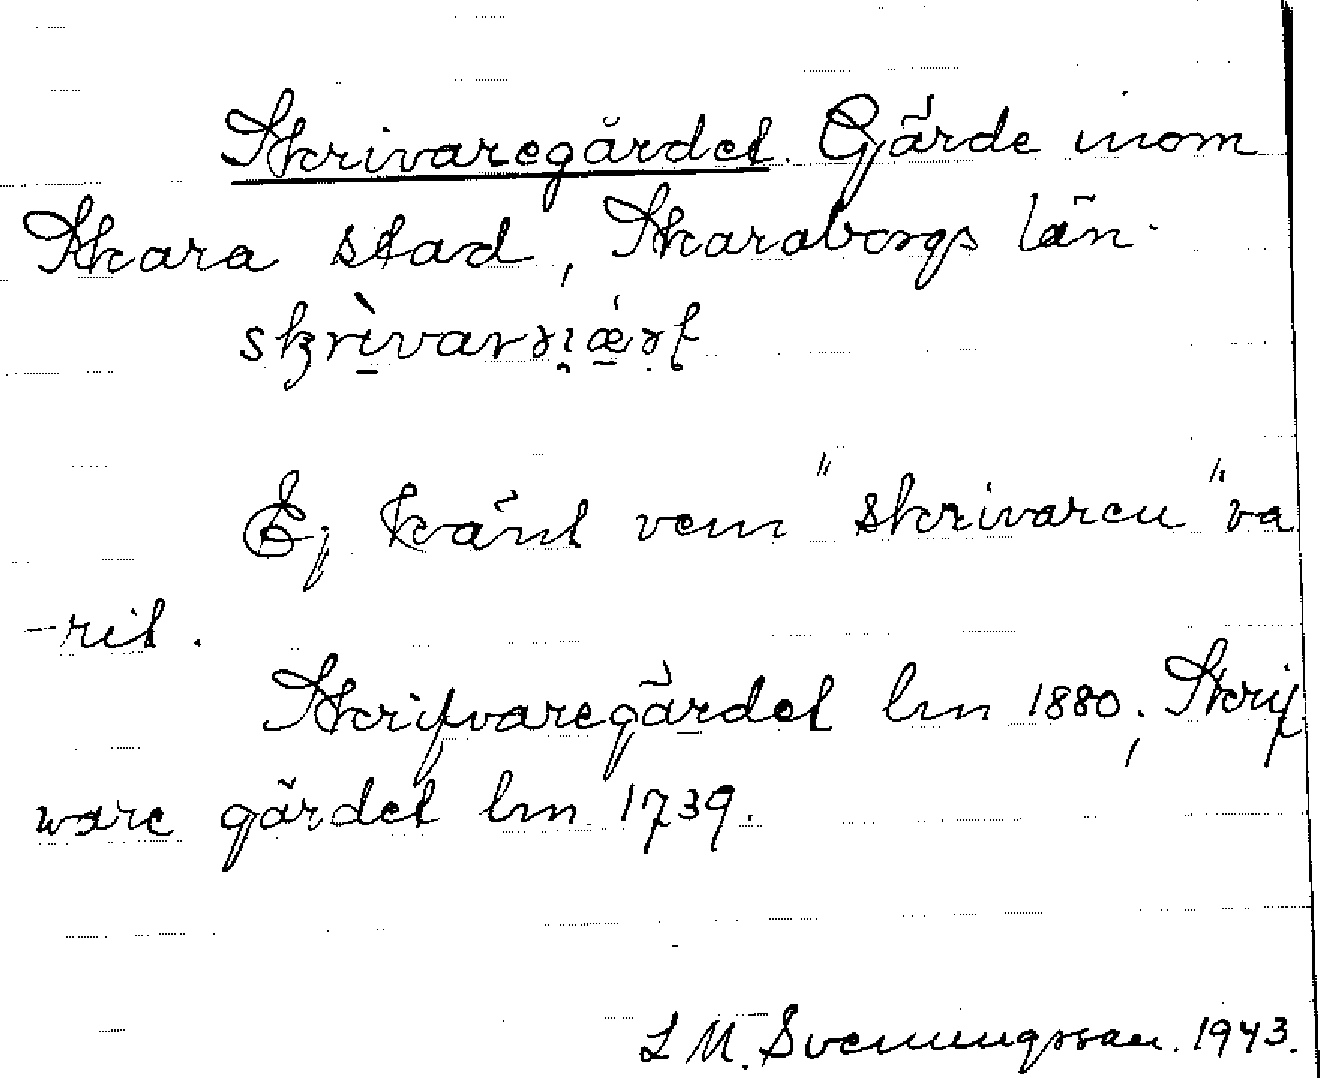 Skrivaregärdet. Gärde inom
Skara stad, Skaraborgs län.
Ej känt vem "skrivaren" va
-rit.
Skrifvaregärdet lm 1880, Skrif
ware gärdet lm 1739.
L M. Svenungsson. 1943.